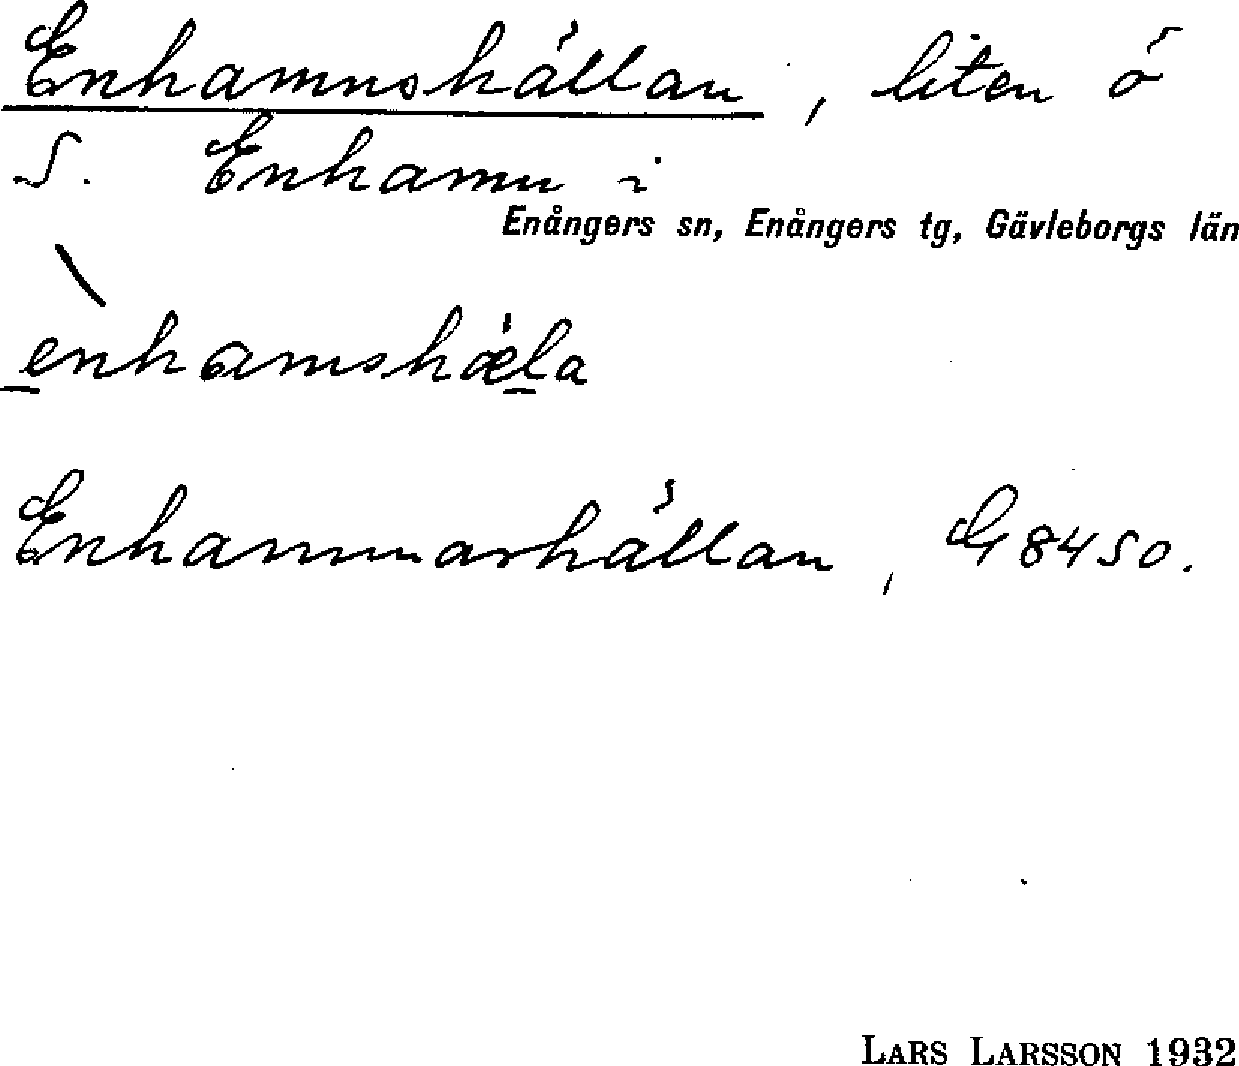 Enhamnshällan, liten ö
S. Enhamn i
Enångers sn, Enångers tg, Gävleborgs län
enhamshæla
Enhammarhällan, G 8450.
LARS LARSSON 1932